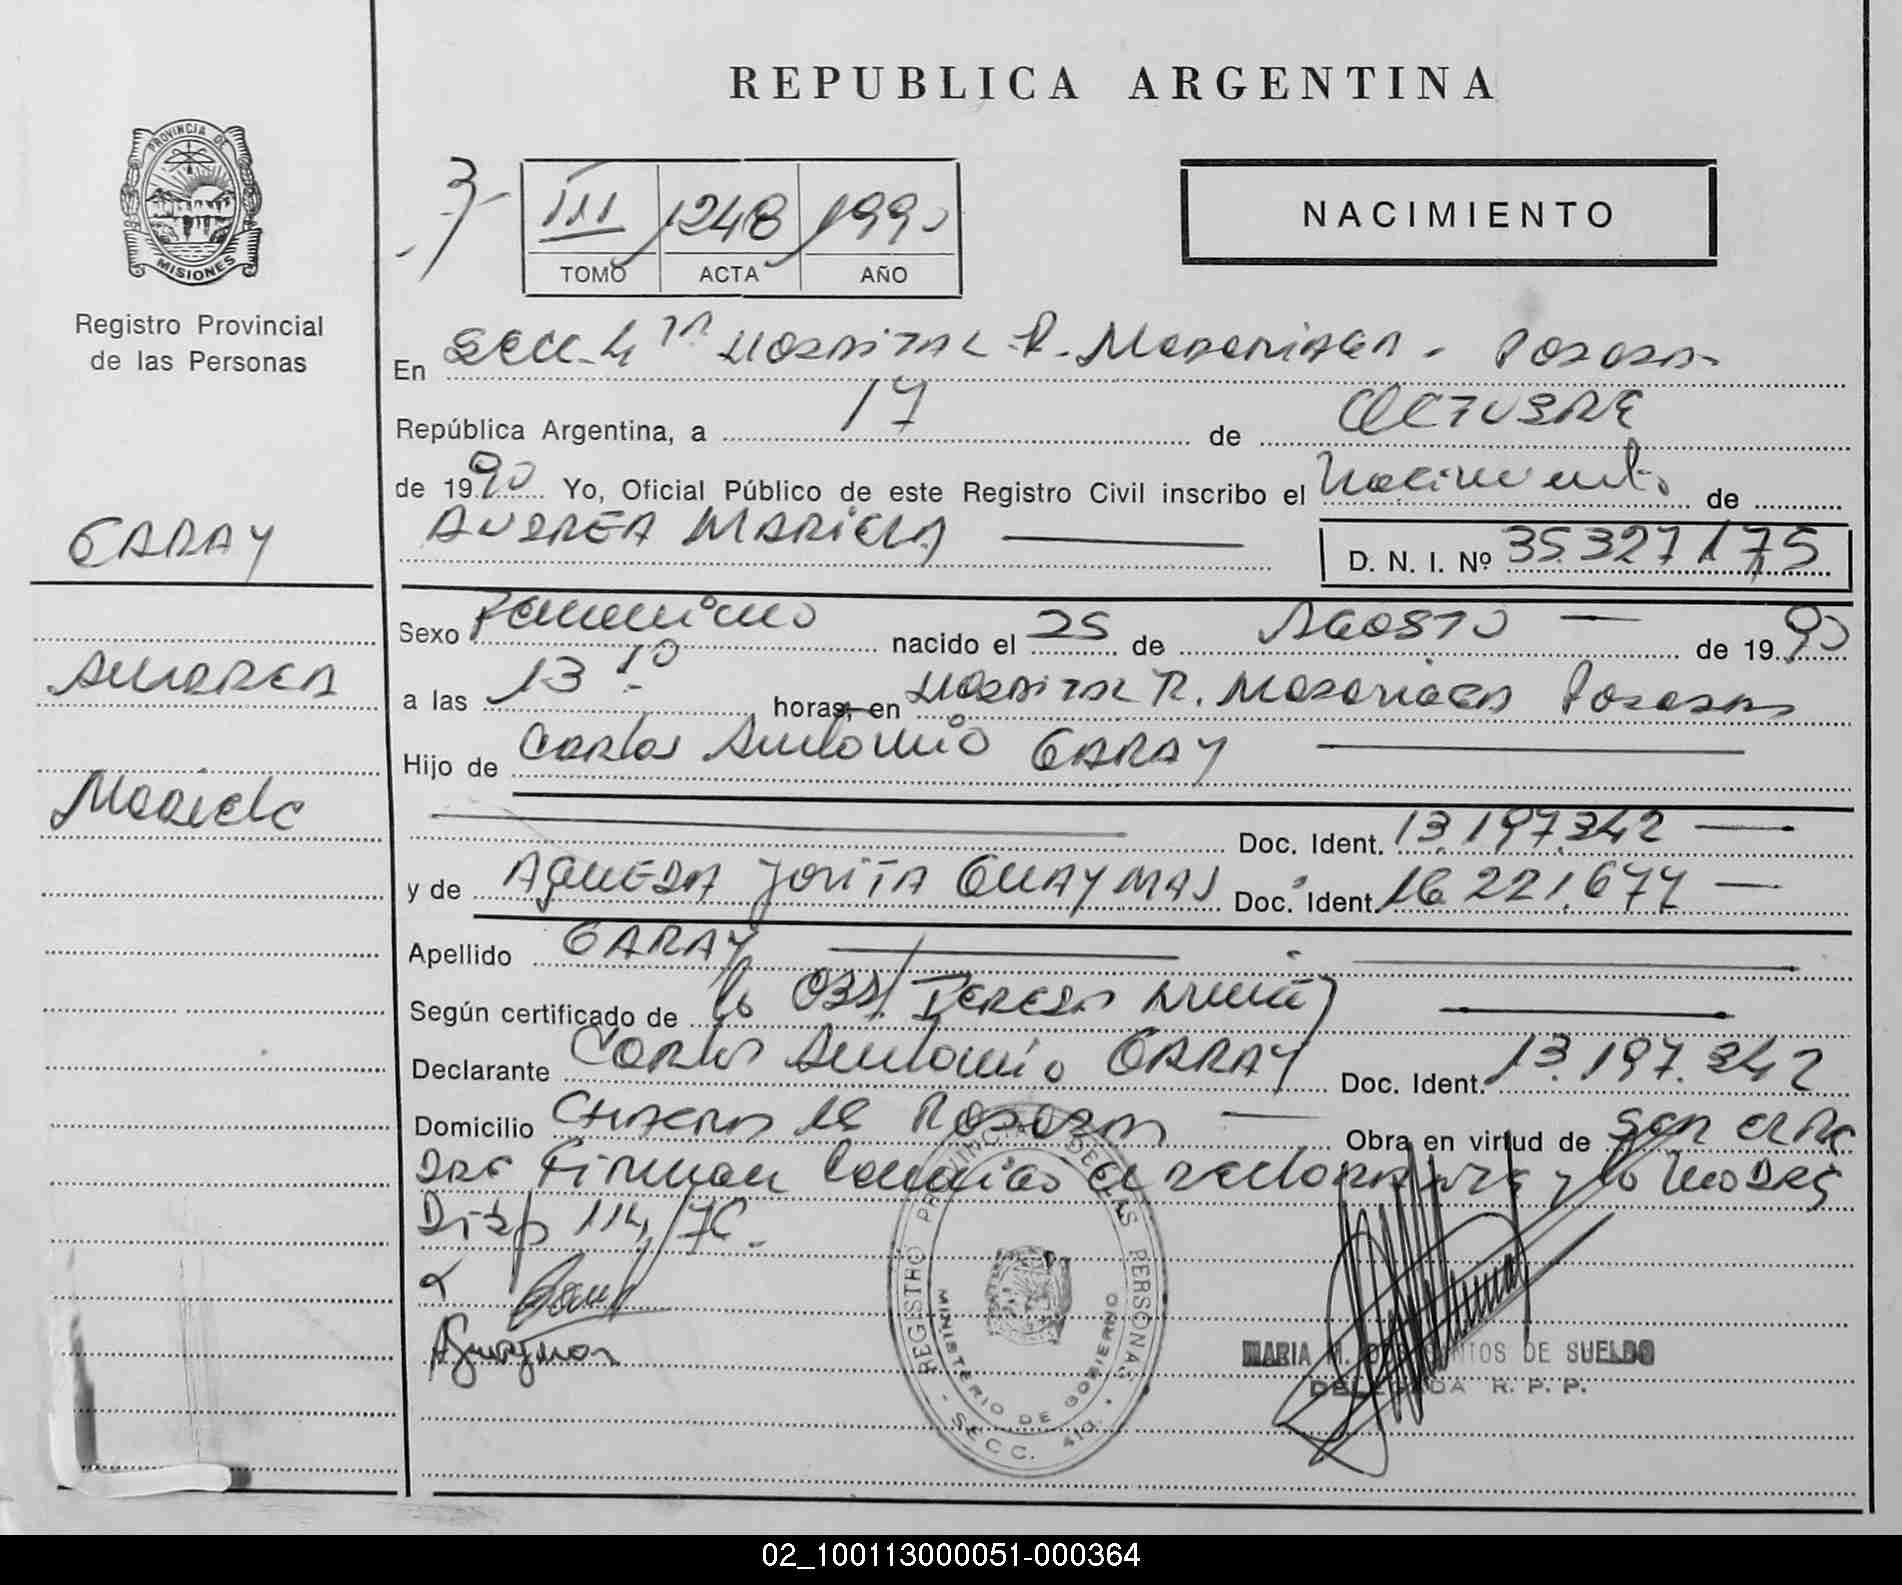 REPUBLICA ARGENTINA
PROVINCIA DE
MISIONES
Registro Provincial
de las Personas
III 1248 1990
TOMO ACTA AÑO
NACIMIENTO
En Secc. 4ta Hospital R. Madariaga - Posadas
República Argentina, a 17 de OCTUBRE
de 1990 Yo, Oficial Público de este Registro Civil inscribo el Nacimiento de
ANDREA MARIELA D. N. I. Nº 35327175
GARAY
Sexo Femenino nacido el 25 de AGOSTO de 1990
ANDREA
a las 13 10 horas, en Hospital R. Madariaga Posadas
Hijo de Carlos Antonio GARAY
Mariela
Doc. Ident. 13.197.342
y de AGUEDA JOVITA GUAYMAS Doc. Ident. 16.221.677
Apellido GARAY
Según certificado de la OBST. TERESA
Declarante Carlos Antonio GARAY Doc. Ident. 13.197.342
Domicilio Posadas Obra en virtud de ser el Pa
dre Firman Conmigo el declarante y la Madre
Disp 114/76.
Guaymas
REGISTRO PROVINCIAL DE LAS PERSONAS
MINISTERIO DE GOBIERNO
SECC. 4ta.
MARIA M. DE SUELDO
DELEGADA R. P. P.
02_100113000051-000364